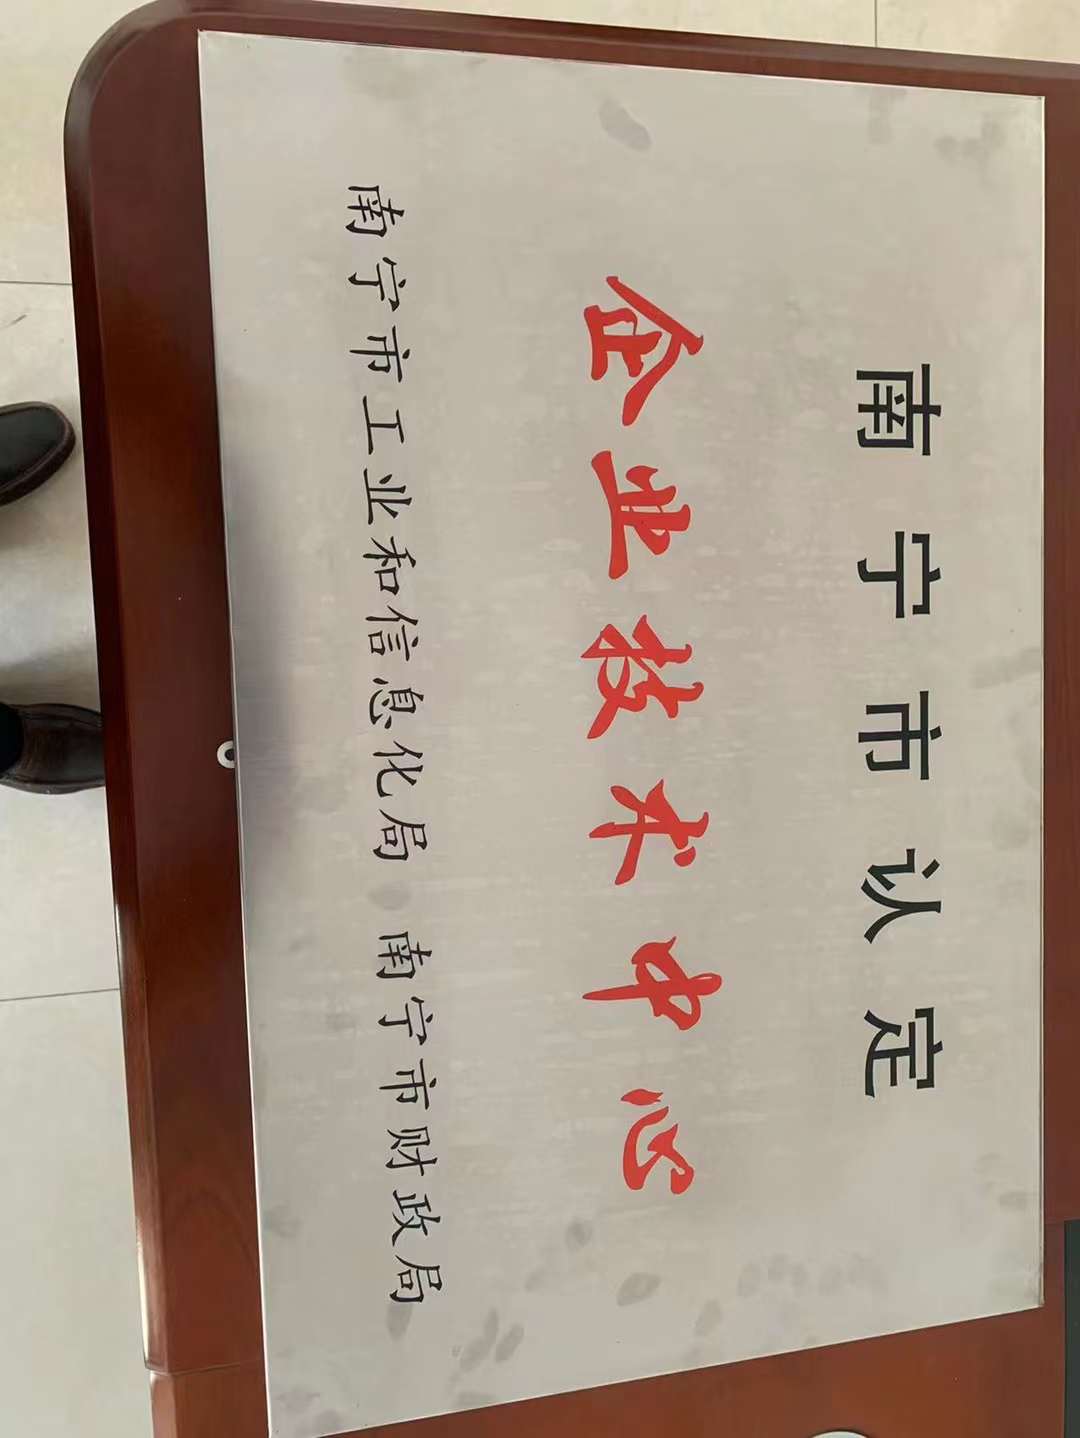 南宁市认定
企业技术中心
南宁市工业和信息化局 南宁市财政局